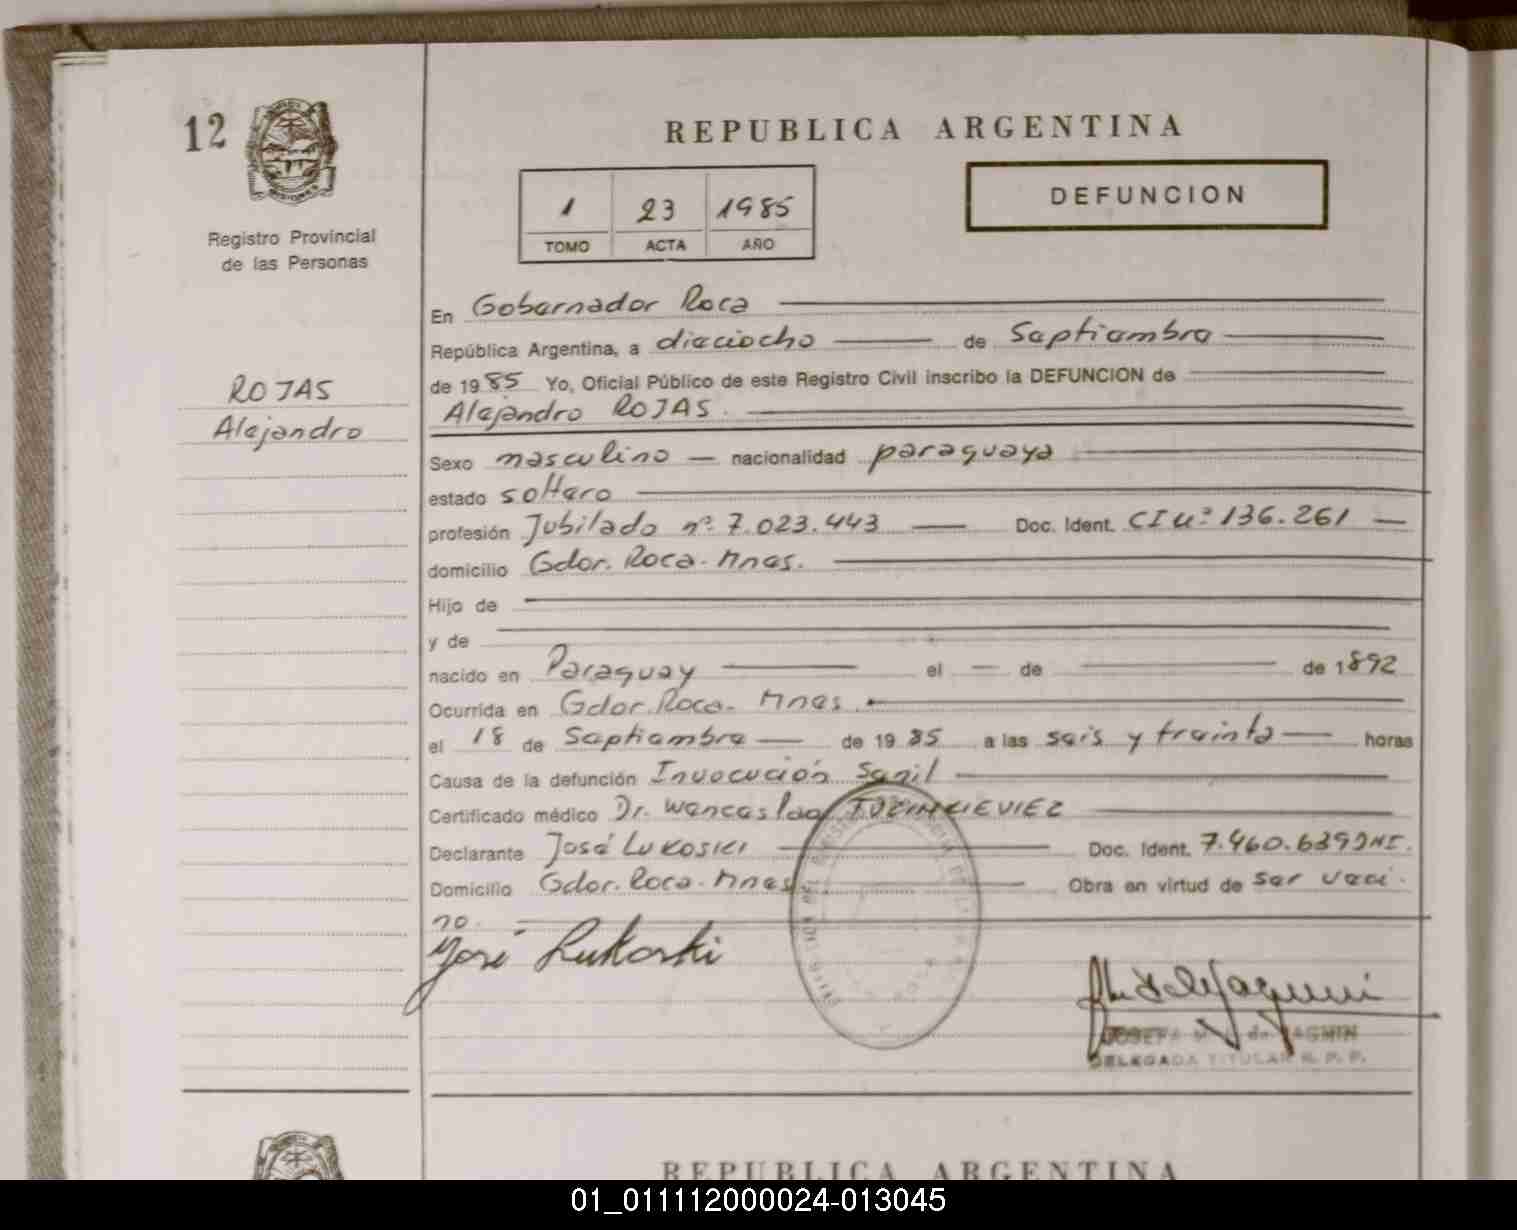 12
REPUBLICA ARGENTINA
MISIONES
1 23 1985
DEFUNCION
TOMO ACTA AÑO
Registro Provincial
de las Personas
En Gobernador Roca
República Argentina, a dieciocho de Septiembre
ROJAS
de 1985 Yo, Oficial Público de este Registro Civil inscribo la DEFUNCION de
Alejandro
Alejandro ROJAS.
Sexo masculino nacionalidad paraguaya
estado soltero
profesión Jubilado nº 7.023.443 Doc. Ident. CI nº 136.261
domicilio Gdor. Roca - Mnes.
Hijo de
y de
nacido en Paraguay el de de 1892
Ocurrida en Gdor. Roca - Mnes.
el 18 de Septiembre de 1985 a las seis y treinta horas
Causa de la defunción Invocución Senil
Certificado médico Dr. Wenceslao
Declarante José Lukoski Doc. Ident. 7.460.639 DNI.
Domicilio Gdor. Roca - Mnes Obra en virtud de ser veci-
no.
José Lukoski
JOSEFA
DELEGADA TITULAR R. P. P.
REPUBLICA ARGENTINA
01_011112000024-013045